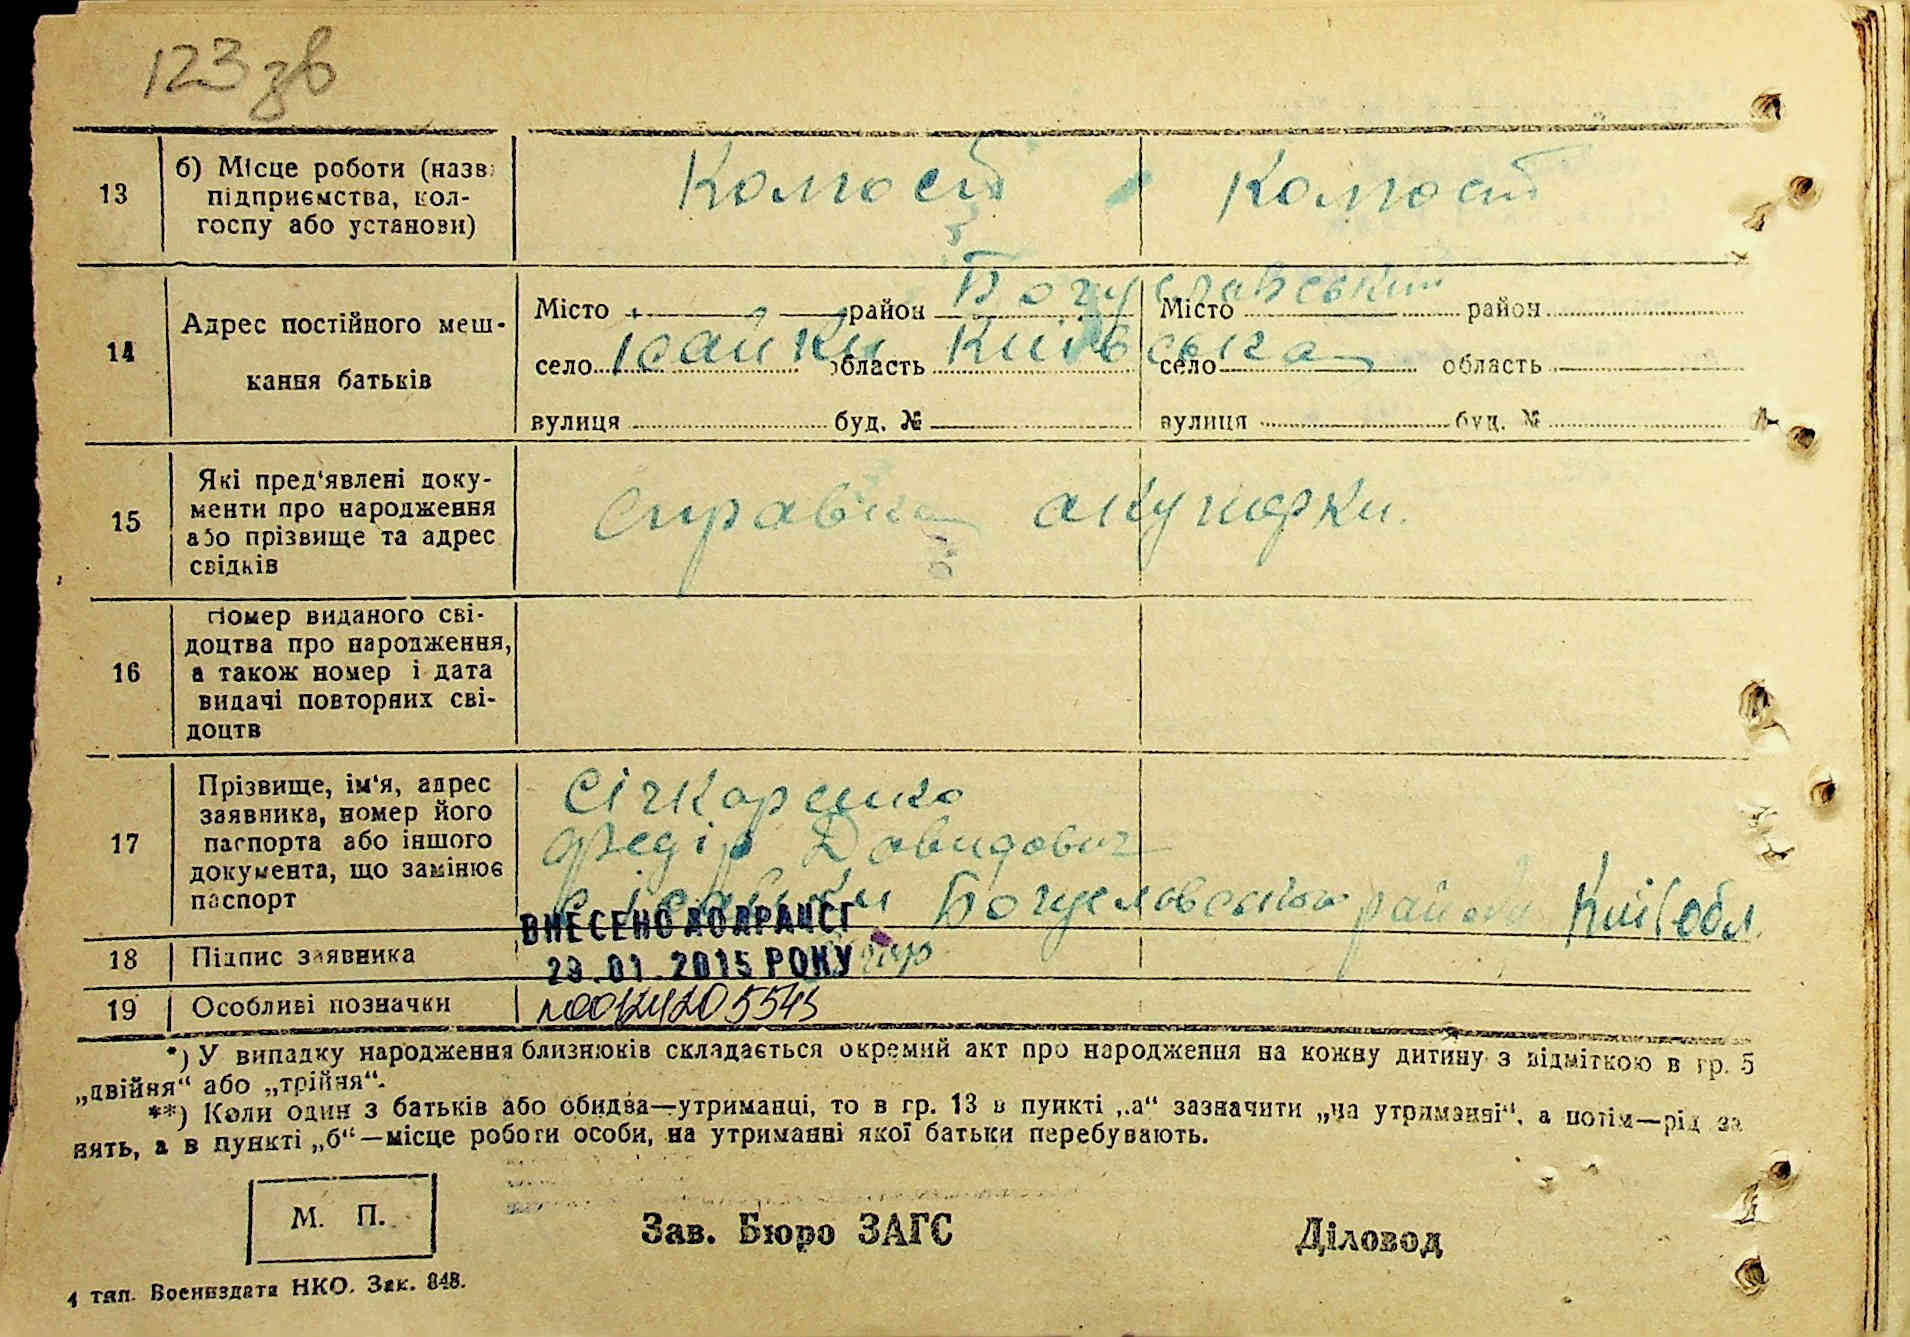 123 зв
13
б) Місце роботи (назв
підприємства, кол-
госпу або установи)
Колгосп
Колгосп
14
Адрес постійного меш-
кання батьків
Місто район Богуславський
село Ісайки область Київська
вулиця буд. №
Місто район
село область
вулиця буд. №
15
Які пред‘явлені доку-
менти про народження
або прізвище та адрес
свідків
Справка акушерки.
16
Номер виданого сві-
доцтва про народження,
а також номер і дата
видачі повторних сві-
доцтв
17
Прізвище, ім‘я, адрес
заявника, номер його
паспорта або іншого
документа, що замінює
паспорт
Січкаренко
Федір Давидович
с Ісайки Богуславського району Київ обл.
18
Підпис заявника
ВНЕСЕНО ДО ДРАЦСГ
29.01.2015 РОКУ
19
Особливі позначки
№00124205545
*) У випадку народження близнюків складається окремий акт про народження на кожну дитину з відміткою в гр. 5
„двійня“ або „трійня“.
**) Коли один з батьків або обидва—утриманці, то в гр. 13 в пункті „а“ зазначити „на утриманні“, а потім—рід за
нять, а в пункті „б“—місце роботи особи, на утриманні якої батьки перебувають.
М. П.
Зав. Бюро ЗАГС
Діловод
4 тип. Воениздата НКО. Зак. 848.